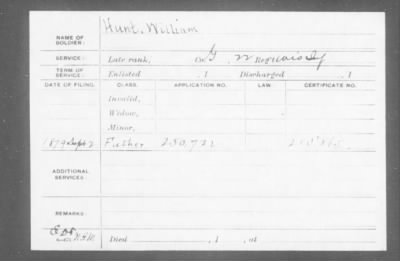 NAME OF SOLDIER: Hunt, William
SERVICE: Late rank, Co. G
TERM OF SERVICE: Enlisted , 1 Discharged , 1
DATE OF FILING. CLASS. APPLICATION NO. LAW. CERTIFICATE NO.
Invalid,
Widow,
Minor,
1879 Sept 2 Father 250,722
ADDITIONAL SERVICES:
REMARKS:
Died , 1 , at